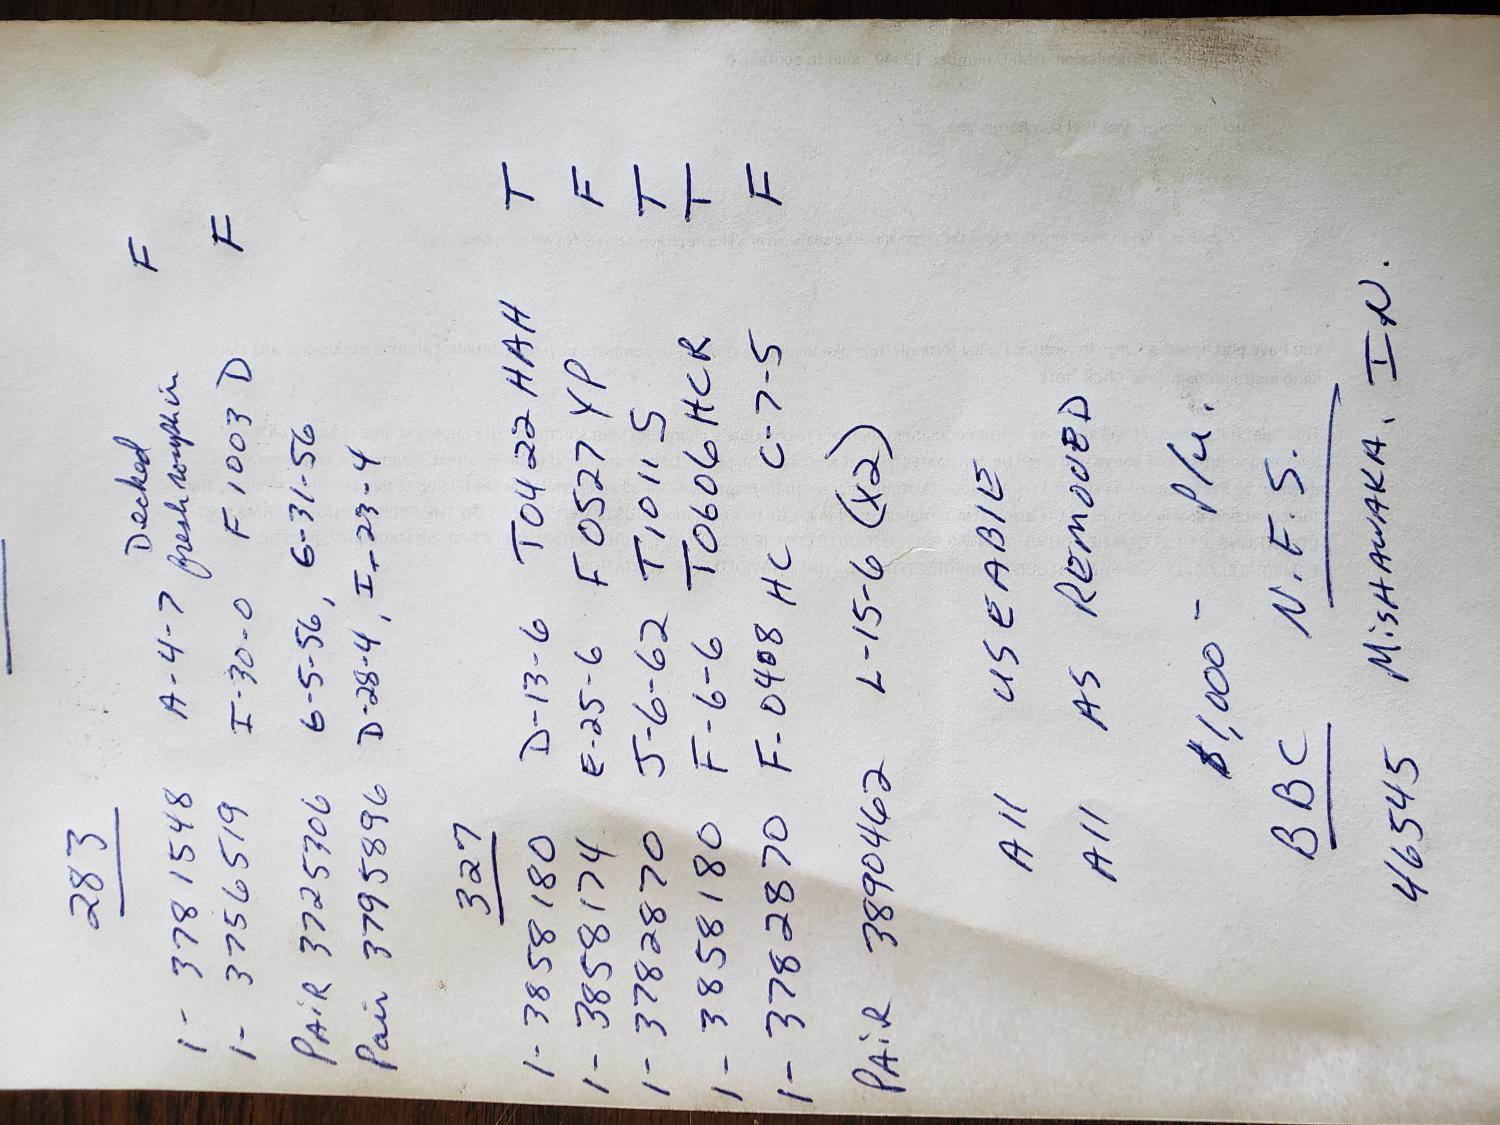 283
1- 3781548 A-4-7 Decked fresh roughin F
1- 3756519 I-30-0 F1003 D F
PAIR 3725306 6-5-56, 6-31-56
Pair 3795896 D-28-4, I-23-4
327
1- 3858180 D-13-6 T0422 HAH T
1- 3858174 E-25-6 F0527 YP F
1- 3782870 J-6-62 T1011 S T
1- 3858180 F-6-6 T0606 HCR T
1- 3782870 F-0408 HC C-7-5 F
PAIR 3890462 L-15-6 (X2)
All USEABLE
All AS REMOVED
$1,000- P/U.
BBC N.E.S.
46545 MISHAWAKA. IN.